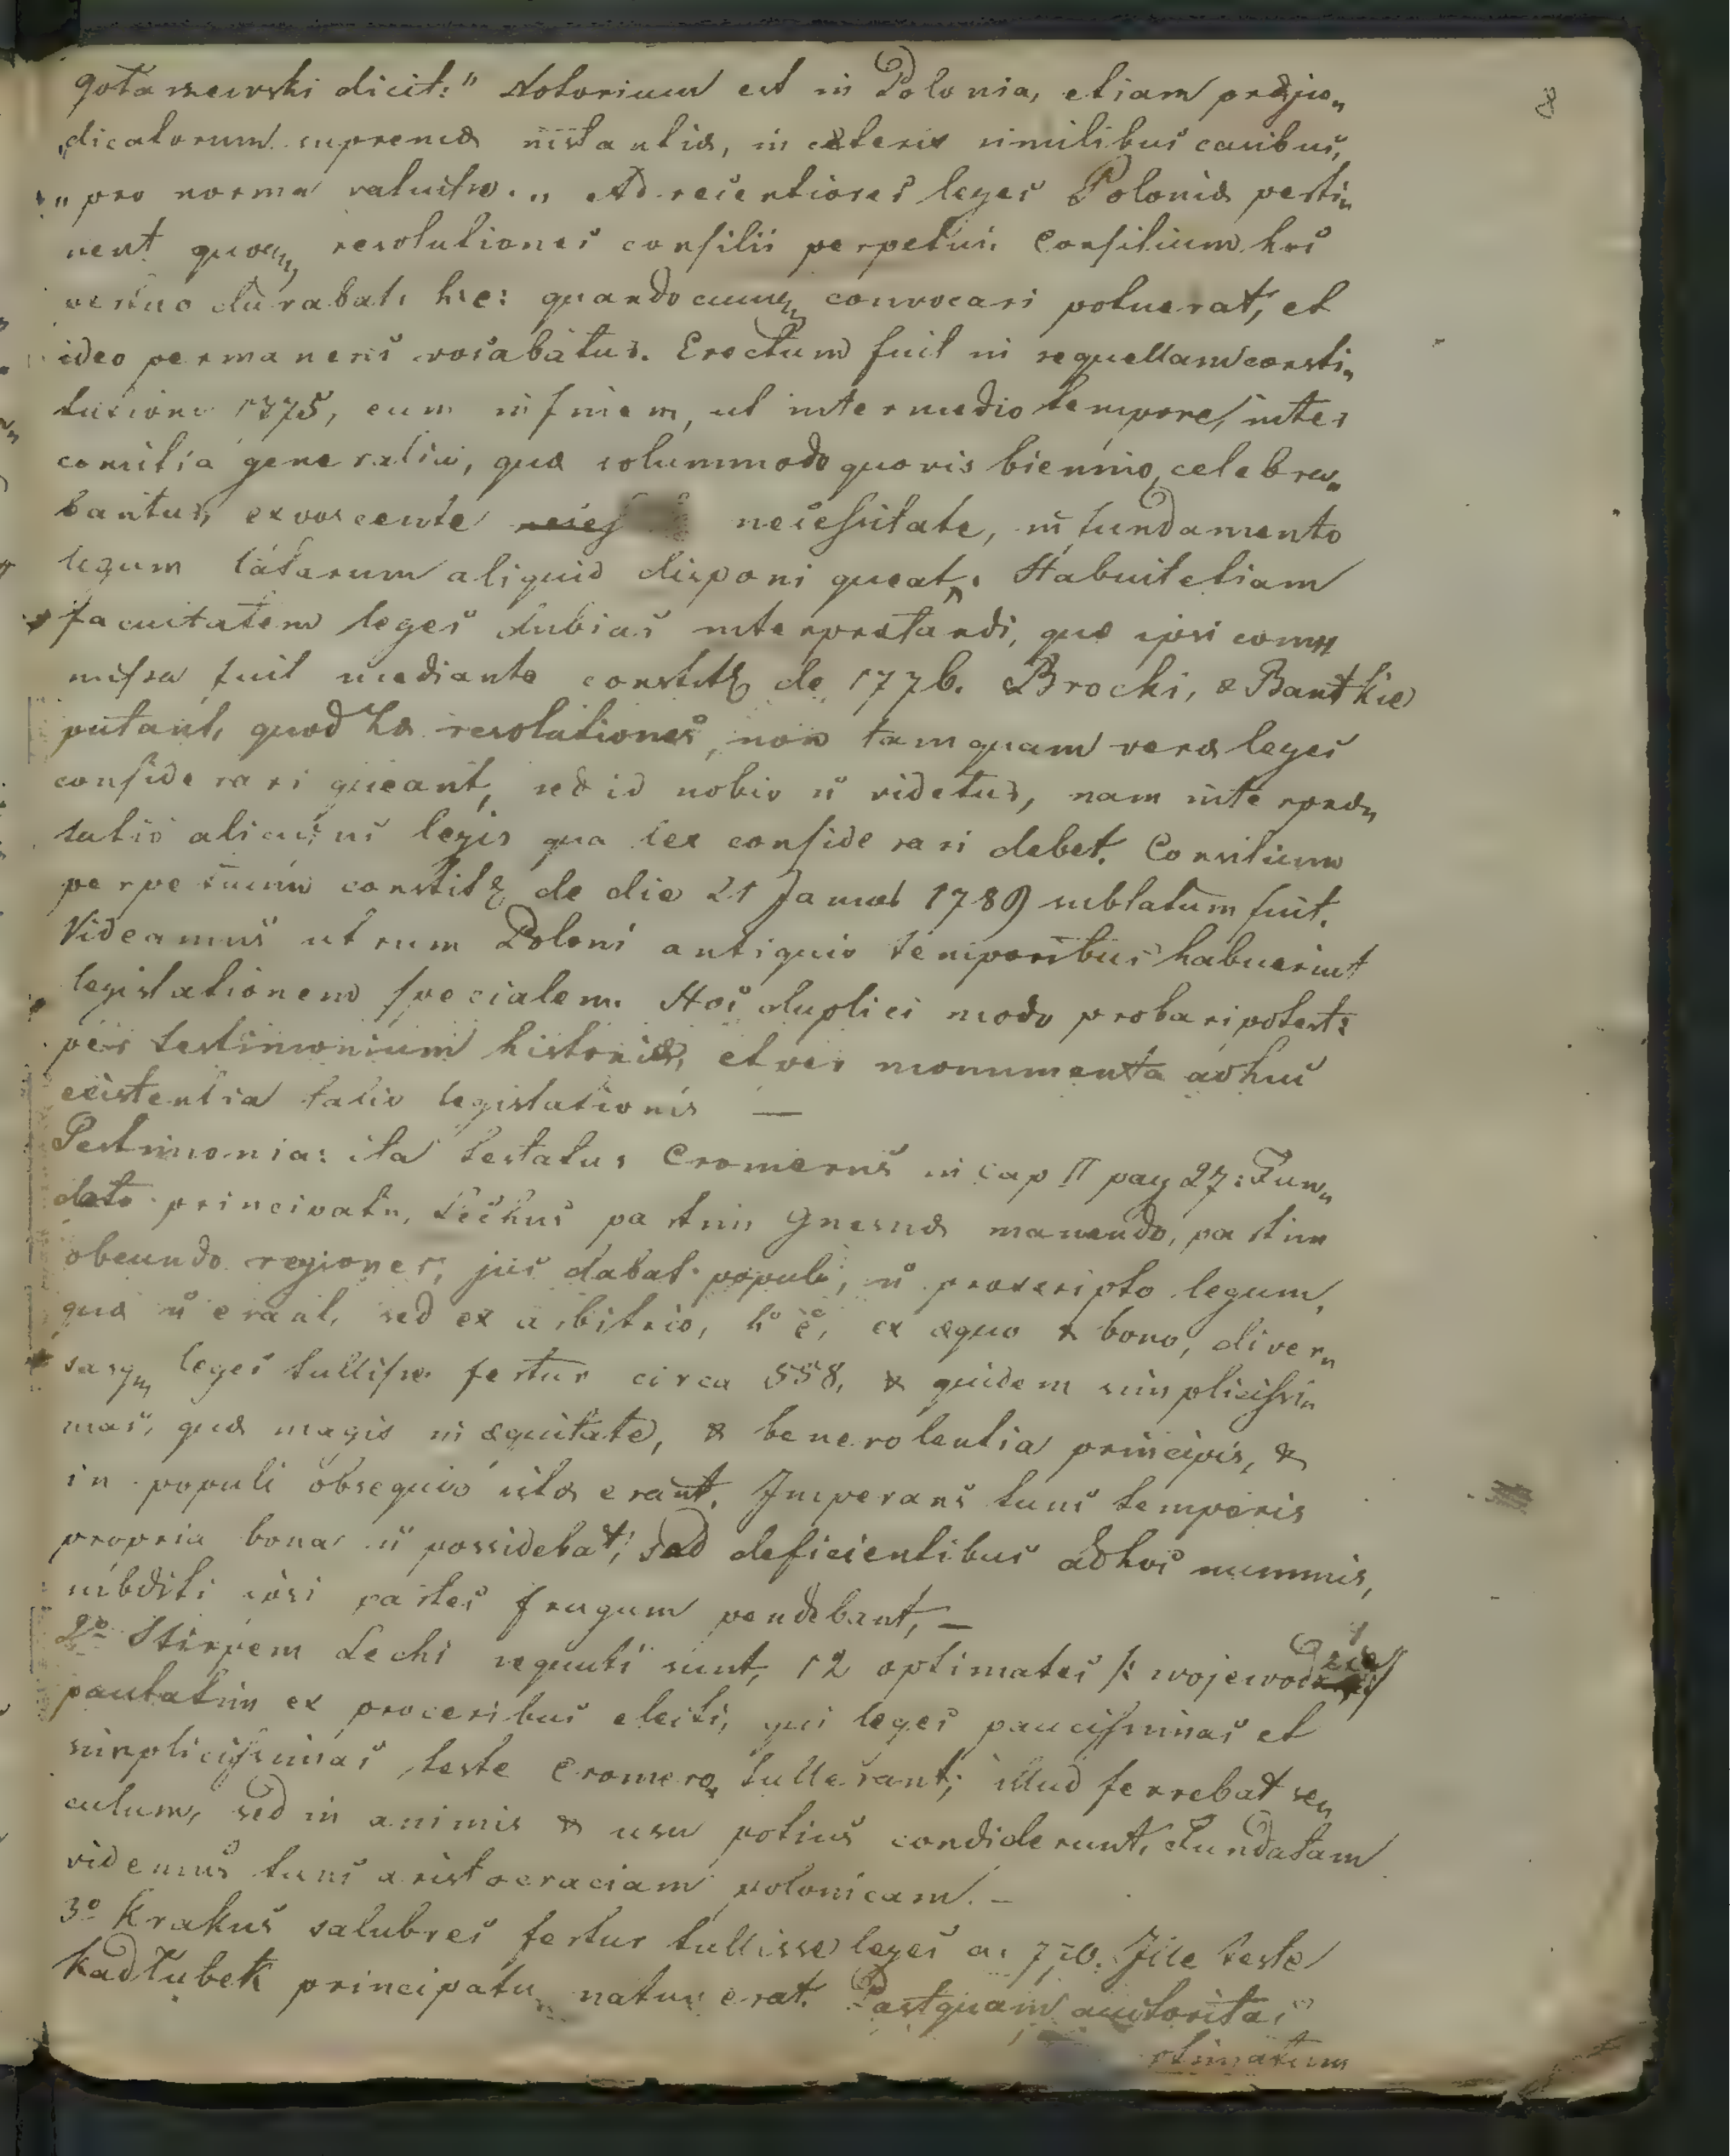 8
Gołaszewski dicit:" Notorium est in Polonia, etiam præju„
„dicatorum supremæ instantiæ, in cæteris similibus casibus,
„pro norma valuisse." Ad recentiores leges Polonia perti„
nent quoq„ resolutiones consilii perpetui. Consilium hoc
durabat, h: e: quandocumq„ convocari potuerat, et
ideo permanens vocabatur. Erectum fuit in sequellam consti„
tutionis 1775, eum in finem, ut intermedio tempore, inter
comitia generalia, quæ solummodo quovis biennio, celebra„
bantur, exposcente necessitate, in fundamento
legum latarum aliquid disponi queat. Habuit etiam
facultatem leges dubias interpretandi, quæ ipsi com„
missa fuit mediante constit: de 1776. Brocki, & Bantkie
putant, quod hæ resolutiones, non tamquam veræ leges
considerari queant, sed id nobis n̄ videtur, nam interpræ„
tatio alicujus legis qua lex considerari debet. Consilium
perpetuum constit: de die 21 Januar 1789 sublatum fuit.
Videamus utrum Poloni antiquis temporibus habuerint
legislationem specialem. Hoc duplici modo probari potest:
per testimonium historiæ, et per monumenta adhuc
existentia talis legislationis —
Testimonia: ita testatur Cromerus in cap II pag 27: Fun„
dato principatu, Lechus partim Gnesnæ manendo, partim
obeundo regiones, jus dabat populi, n̄ præscripto legum,
quæ n̄ erant, sed ex arbitrio, h° ē, ex æquo & bono, diver„
sasq„ leges tullisse fertur circa 558, & quidem simplicissi„
mas, quæ magis in æquitate, & benevolentia principis, &
in populi obsequio sitæ erant. Imperans tunc temporis
propria bona n̄ possidebat; sed deficientibus adhuc nummis,
subditi ipsi partes frugum pendebant, —
2° Stirpem Lechi sequuti sunt, 12 optimates /: wojewodzie/
paulatim ex proceribus electi, qui leges paucissimas et
simplicissimas, teste Cromero, tullerant; illud ferrebat se„
culum, sed in animis & usu potius condiderunt. Fundatam
videmus tunc aristocraciam polonicam. —
3° Krakus salubres fertur tullisse leges a: 700. Iste teste
Kadłubek principatu natus erat. Postquam auctoritas
optimatum